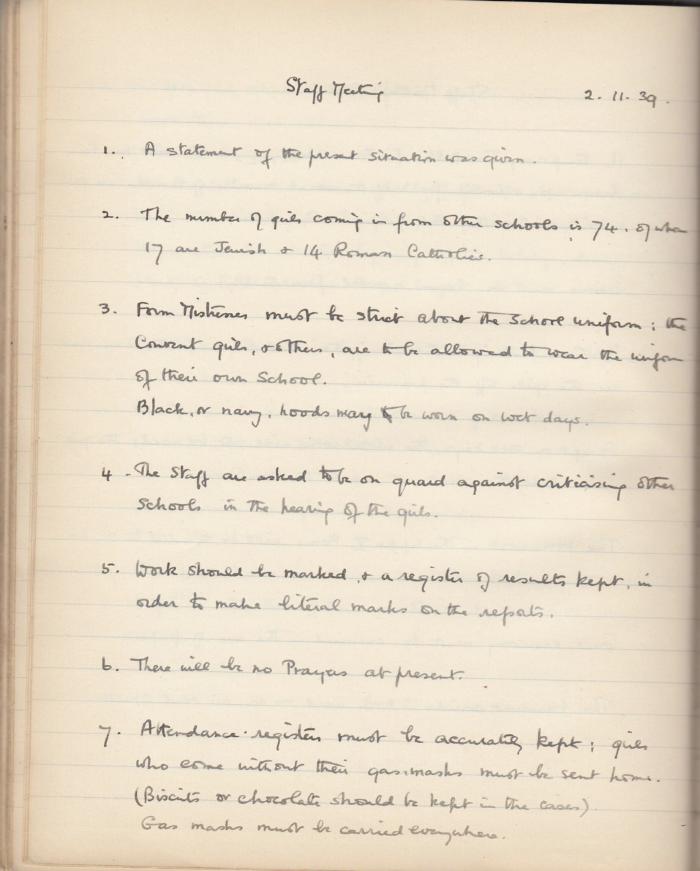 Staff Meeting 2. 11. 39.
1. A statement of the present situation was given.
2. The number of girls coming in from other schools is 74. of whom
17 are Jewish & 14 Roman Catholic.
3. Form Mistresses must be strict about the School uniform; the
Convent girls, & others, are to be allowed to wear the uniform
of their own School.
Black, or navy, hoods may be worn on wet days.
4. The Staff are asked to be on guard against criticising other
Schools in the hearing of the girls.
5. Work should be marked, & a register of results kept, in
order to make literal marks on the reports.
6. There will be no Prayers at present.
7. Attendance registers must be accurately kept; girls
who come without their gas-masks must be sent home.
(Biscuits or chocolate should be kept in the cases).
Gas masks must be carried everywhere.